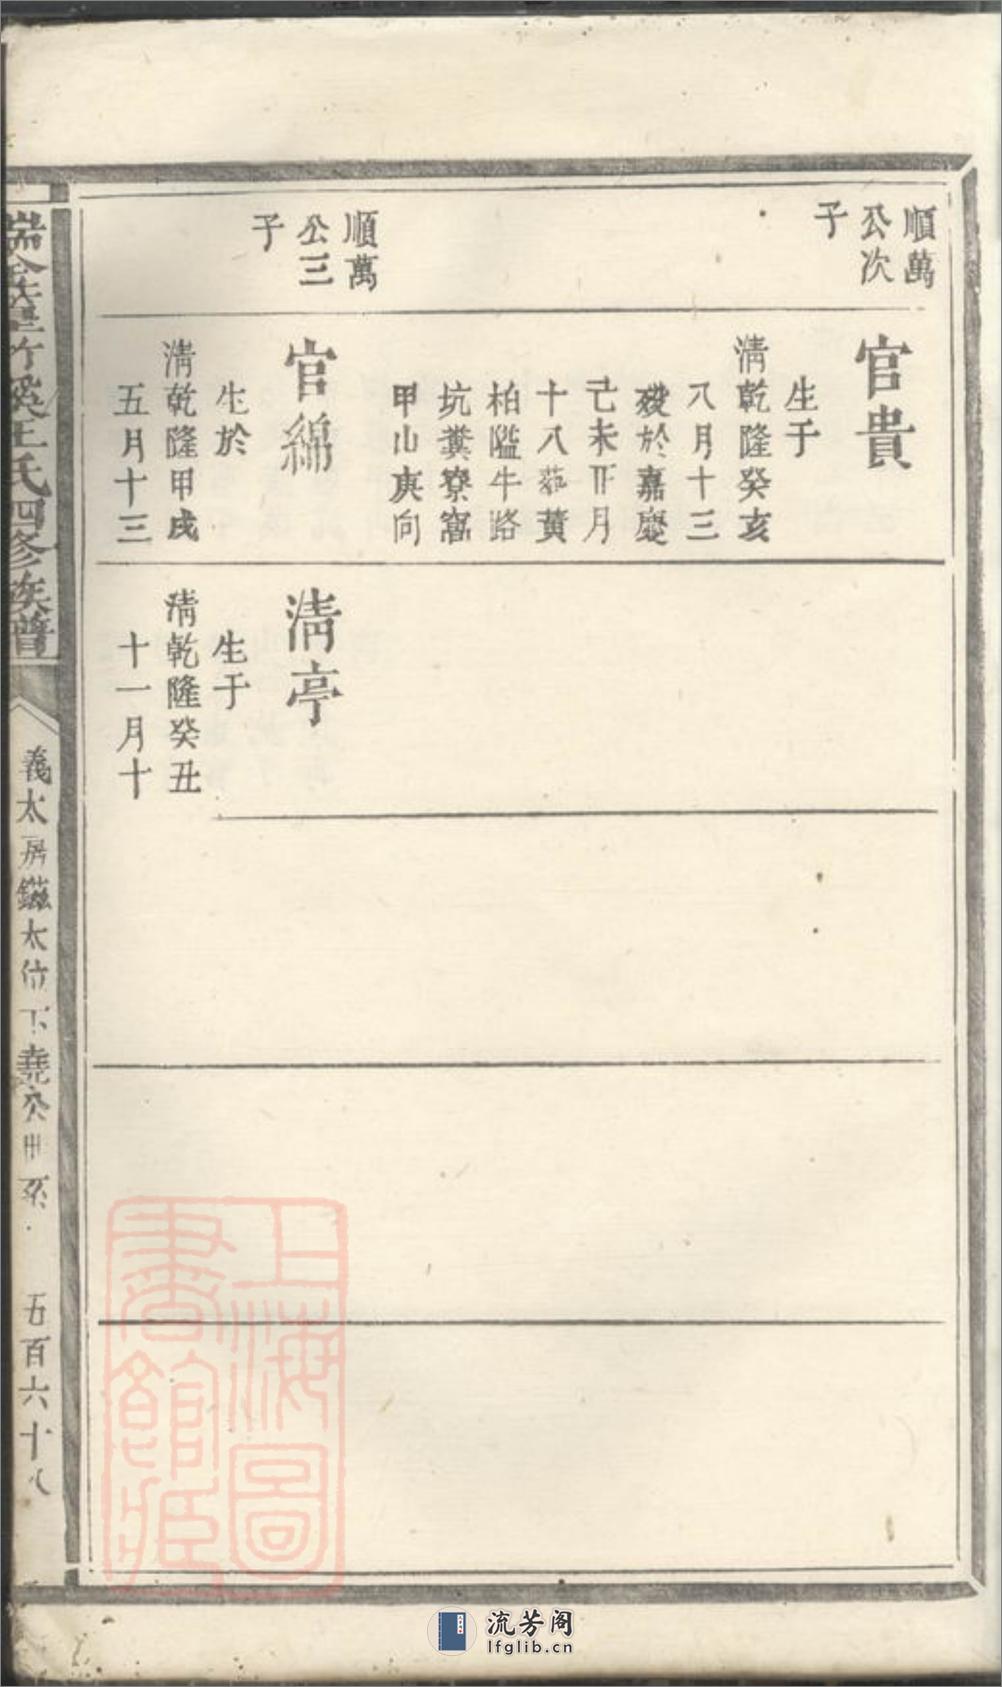 順萬
公次
子
官貴
生于
清乾隆癸亥
八月十三
歿於嘉慶
己未正月
十八葬黃
柏隘牛路
坑糞寮窩
甲山庚向
順萬
公三
子
官綿
生於
清乾隆甲戌
五月十三
清亭
生于
清乾隆癸丑
十一月十
竹溪王氏四修族譜
義太房鎡太位下堯 世系
五百六十八
上海圖書館藏
流芳阁
lfglib.cn